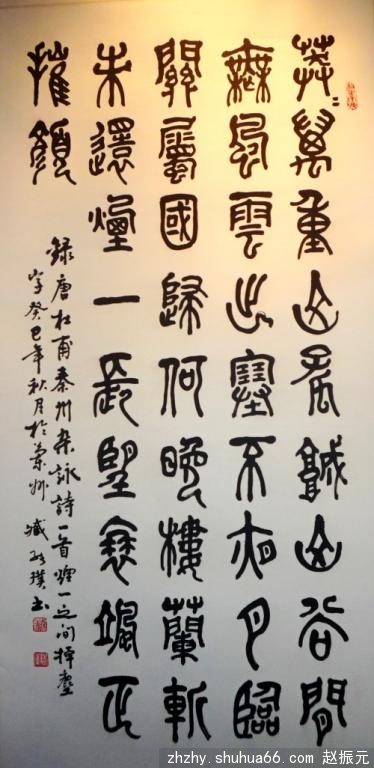 莽〻萬重山孤城山谷間
無風雲出塞不夜月臨
關屬國歸何晚樓蘭斬
未還煙一長望衰颯正
摧顏
録唐杜甫秦州杂詠詩一首煙一之间掉塵
字癸巳年秋月於蘭州 臧璞书
zhzhy.shuhua66.com 赵振元